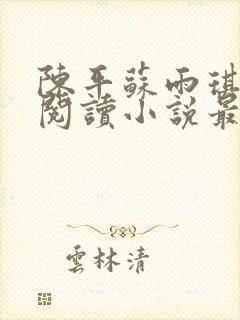 陳平蘇雨琪
閱讀小說最
雲林清